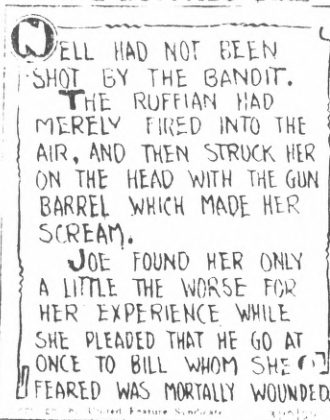 NELL HAD NOT BEEN
SHOT BY THE BANDIT.
THE RUFFIAN HAD
MERELY FIRED INTO THE
AIR, AND THEN STRUCK HER
ON THE HEAD WITH THE GUN
BARREL WHICH MADE HER
SCREAM.
JOE FOUND HER ONLY
A LITTLE THE WORSE FOR
HER EXPERIENCE WHILE
SHE PLEADED THAT HE GO AT
ONCE TO BILL WHOM SHE
FEARED WAS MORTALLY WOUNDED
United Feature Syndicate